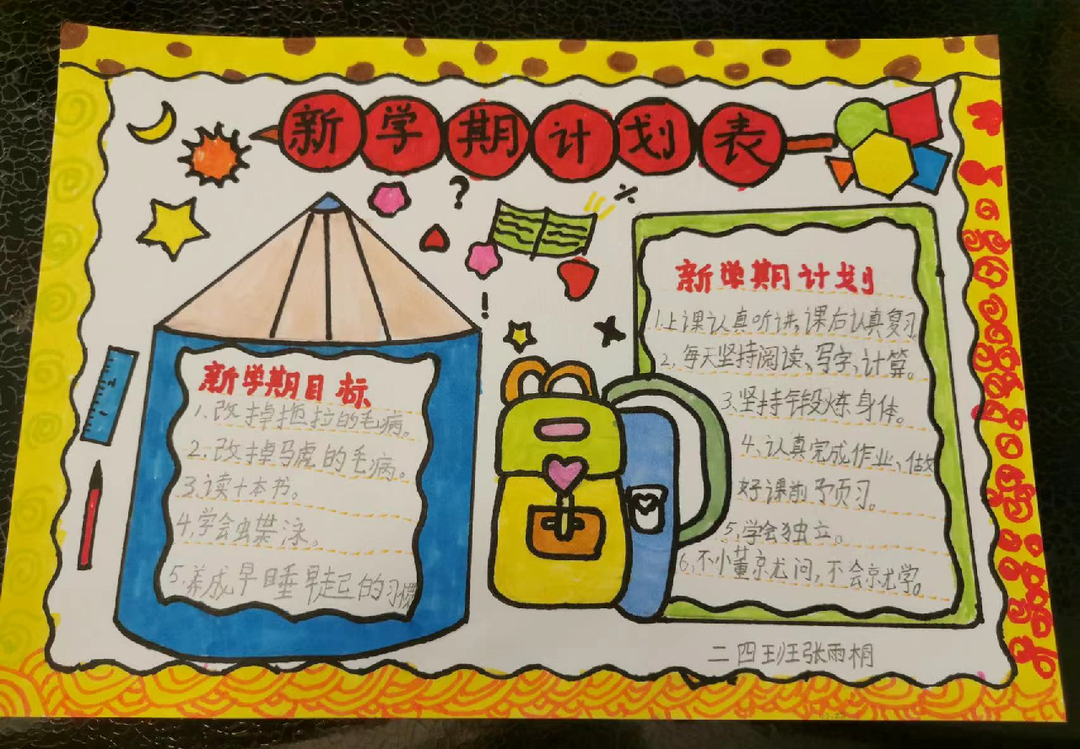 新学期计划表
新学期目标
1.改掉拖拉的毛病。
2.改掉马虎的毛病。
3.读十本书。
4.学会蛙泳。
5.养成早睡早起的习惯
新学期计划
1.上课认真听讲,课后认真复习
2.每天坚持阅读、写字、计算。
3.坚持锻炼身体。
4.认真完成作业、做
好课前预习。
5.学会独立。
6.不懂就问,不会就学。
二四班张雨桐